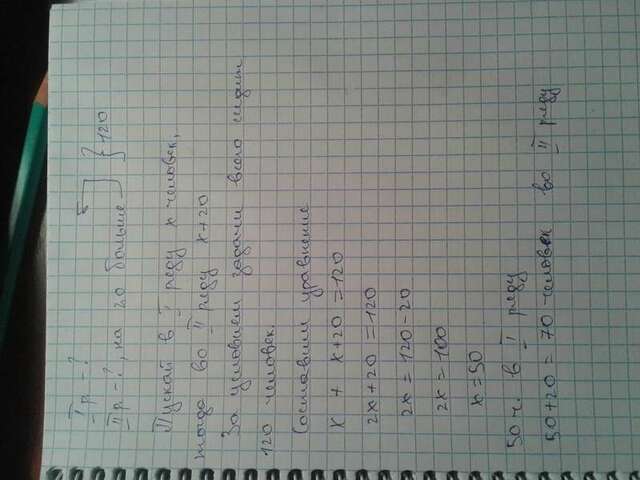 I р - ?
II р - ?, на 20 больше } 120
Пускай в I реду x человек,
тогда во II реду x+20
За условием задачи всего сидит
120 человек.
Составим уравнение
x + x+20 = 120
2x+20 = 120
2x = 120-20
2x = 100
x = 50
50 ч. в I реду
50+20 = 70 человек во II реду